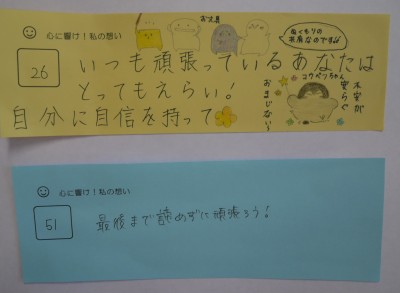 心に響け！私の想い
お文具
ぬくもりの
26
いつも頑張っているあなたは
とってもえらい！
自分に自信を持って
コウペンちゃん
不安が
安らぐ
おまじない〜
心に響け！私の想い
51
最後まで諦めずに頑張ろう！